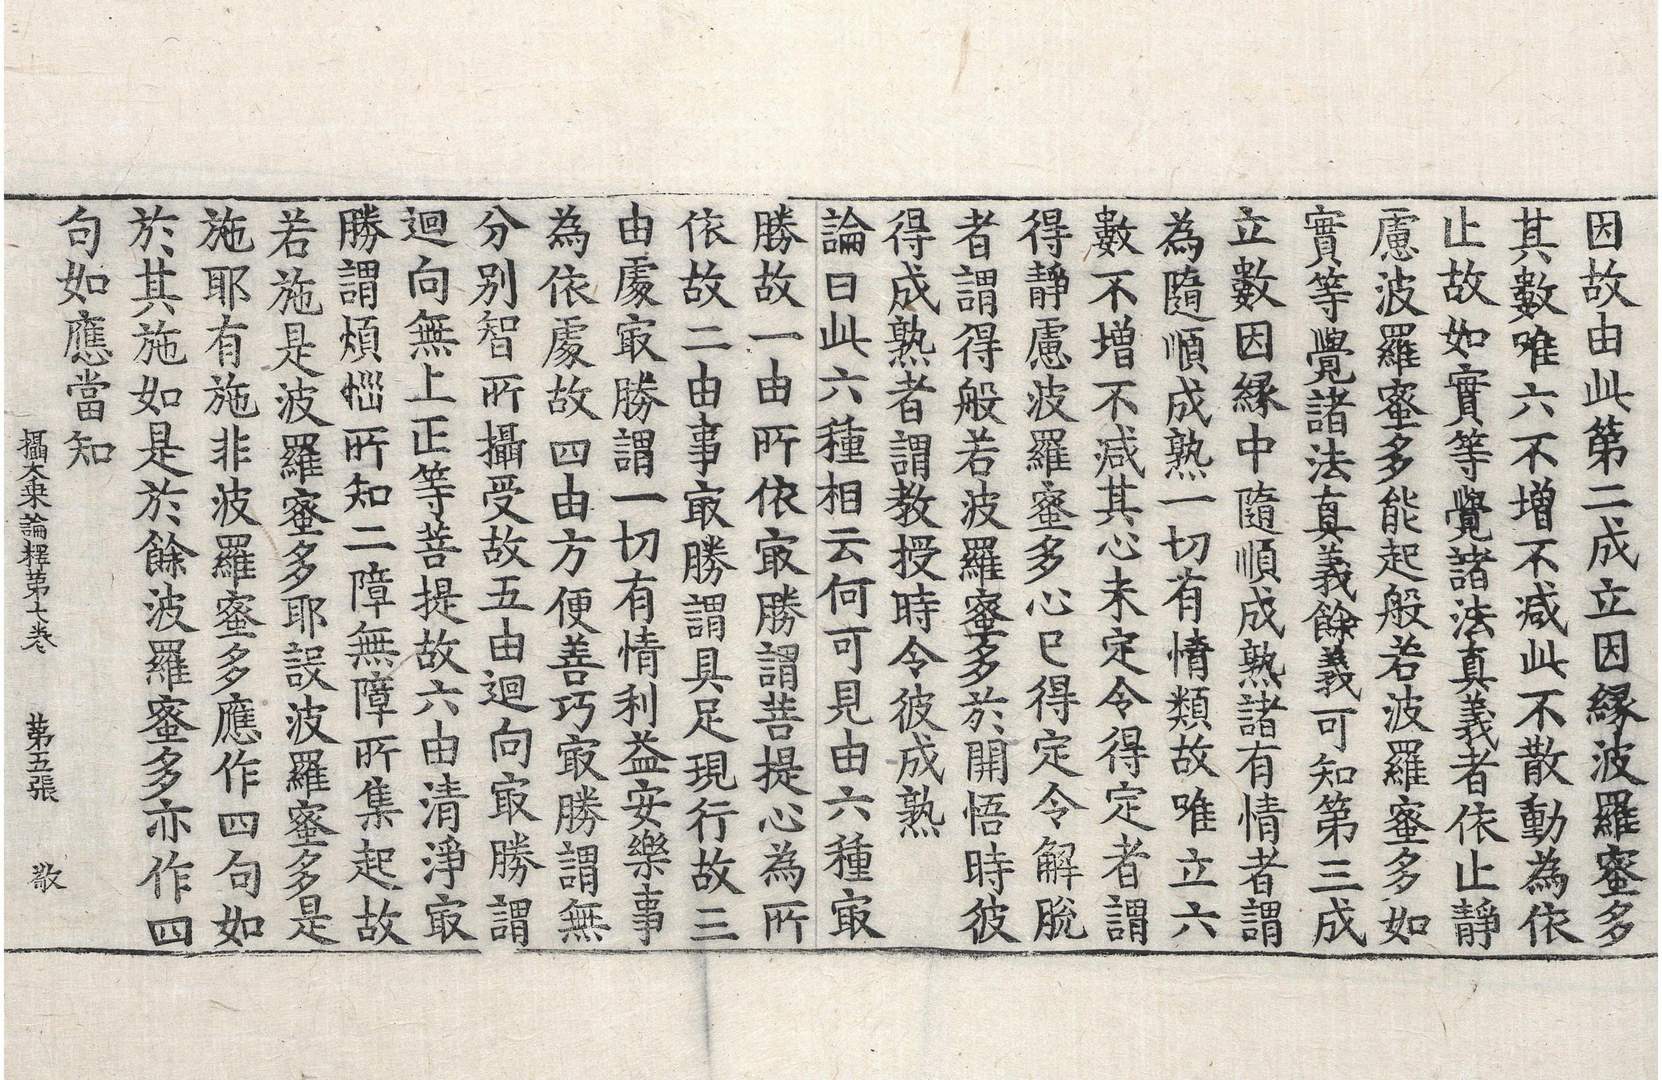 因故由此第二成立因縁波羅蜜多
其數唯六不增不減此不散動為依
止故如實等覺諸法真義者依止靜
慮波羅蜜多能起般若波羅蜜多如
實等覺諸法真義餘義可知第三成
立數因縁中隨順成熟諸有情者謂
為隨順成熟一切有情類故唯立六
數不增不減其心未定令得定者謂
得靜慮波羅蜜多心已得定令解脫
者謂得般若波羅蜜多於開悟時彼
得成熟者謂教授時令彼成熟
論曰此六種相云何可見由六種㝡
勝故一由所依㝡勝謂菩提心為所
依故二由事㝡勝謂具足現行故三
由處㝡勝謂一切有情利益安樂事
為依處故四由方便善巧㝡勝謂無
分別智所攝受故五由迴向㝡勝謂
迴向無上正等菩提故六由清淨㝡
勝謂煩惱所知二障無障所集起故
若施是波羅蜜多耶設波羅蜜多是
施耶有施非波羅蜜多應作四句如
於其施如是於餘波羅蜜多亦作四
句如應當知
攝大乘論釋第七卷 第五張 敬